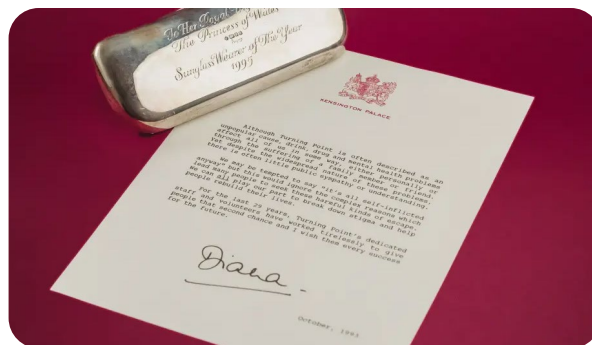 To Her Royal
The Princess of Wales
from
Sunglass Wearer of The Year
1995
KENSINGTON PALACE
Although Turning Point is often described as an
unpopular cause, drink, drug and mental health problems
affect all of us in some way, either personally or
through the suffering of a family member or friend.
Yet despite the widespread nature of these problems,
there is often little public sympathy or understanding.
We may be tempted to say "it's all self-inflicted
anyway" but this would ignore the complex reasons which
lead many people to seek these harmful kinds of escape.
We can all play our part to break down stigma and help
people rebuild their lives.
For the last 29 years, Turning Point's dedicated
staff and volunteers have worked tirelessly to give
people that second chance and I wish them every success
for the future.
Diana.
October, 1993